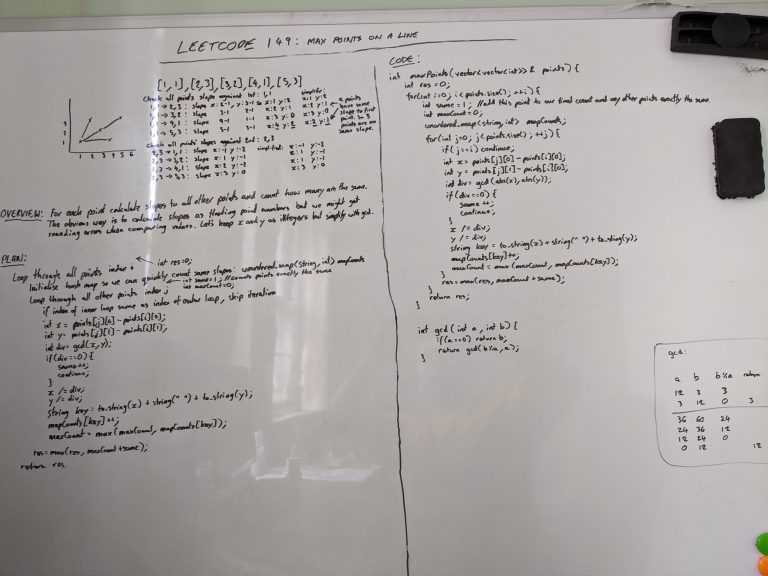 LEETCODE 149: MAX POINTS ON A LINE
[1,1],[2,3],[3,2],[4,1],[5,3]
Check all points slope against 1st: 1,1
simplify:
1,1 → 2,3: slope x:2-1, y:3-1 so x:1 y:2 x:1 y:2
slope 3-1 2-1 x:2 y:1 x:2 y:1
slope 4-1 1-1 x:3 y:0
1,1 → 5,3: slope 5-1 3-1 x:4 y:2 x:2 y:1
2 points have same slope to first point. So 3 points are on same slope.
Check all points slopes against 2nd: 2,3
2,3 → 3,2: slope x:1 y:-1 simplified: x:1 y:-1
2,3 → 4,1: slope x:2 y:-2 x:1 y:-1
2,3 → 5,3: slope x:3 y:0
3
2
1
1 2 3 4 5 6
OVERVIEW: For each point calculate slopes to all other points and count how many are the same.
The obvious way is to calculate slopes as floating point numbers but we might get
rounding errors when comparing values. Let's keep x and y as integers but simplify with gcd.
PLAN:
int res=0;
Loop through all points index i
Initialise hash map so we can quickly count same slopes: unordered_map<string, int> mapCounts
int same=1; //counts points exactly the same
int maxCount=0;
Loop through all other points index j
if index of inner loop same as index of outer loop, skip iteration
int x = points[j][0]-points[i][0];
int y = points[j][1]-points[i][1];
int div = gcd(x,y);
if(div==0){
same++;
continue;
}
x /= div;
y /= div;
string key = to_string(x) + string(" ") + to_string(y);
mapCounts[key]++;
maxCount = max(maxCount, mapCounts[key]);
res=max(res, maxCount+same);
return res
CODE:
int maxPoints(vector<vector<int>>& points) {
int res=0;
for(int i=0; i<points.size(); ++i) {
int same=1; //add this point to our final count and any other points exactly the same.
int maxCount=0;
unordered_map<string, int> mapCounts;
for(int j=0; j<points.size(); ++j) {
if(j==i) continue;
int x = points[j][0]-points[i][0];
int y = points[j][1]-points[i][1];
int div = gcd(abs(x), abs(y));
if(div==0) {
same++;
continue;
}
x /= div;
y /= div;
string key = to_string(x)+string(" ")+to_string(y);
mapCounts[key]++;
maxCount = max(maxCount, mapCounts[key]);
}
res=max(res, maxCount+same);
}
return res;
}
int gcd(int a, int b) {
if(a==0) return b;
return gcd(b%a, a);
}
gcd:
a b b%a return
12 3 3
3 12 0 3
36 60 24
24 36 12
12 24 0
0 12 12